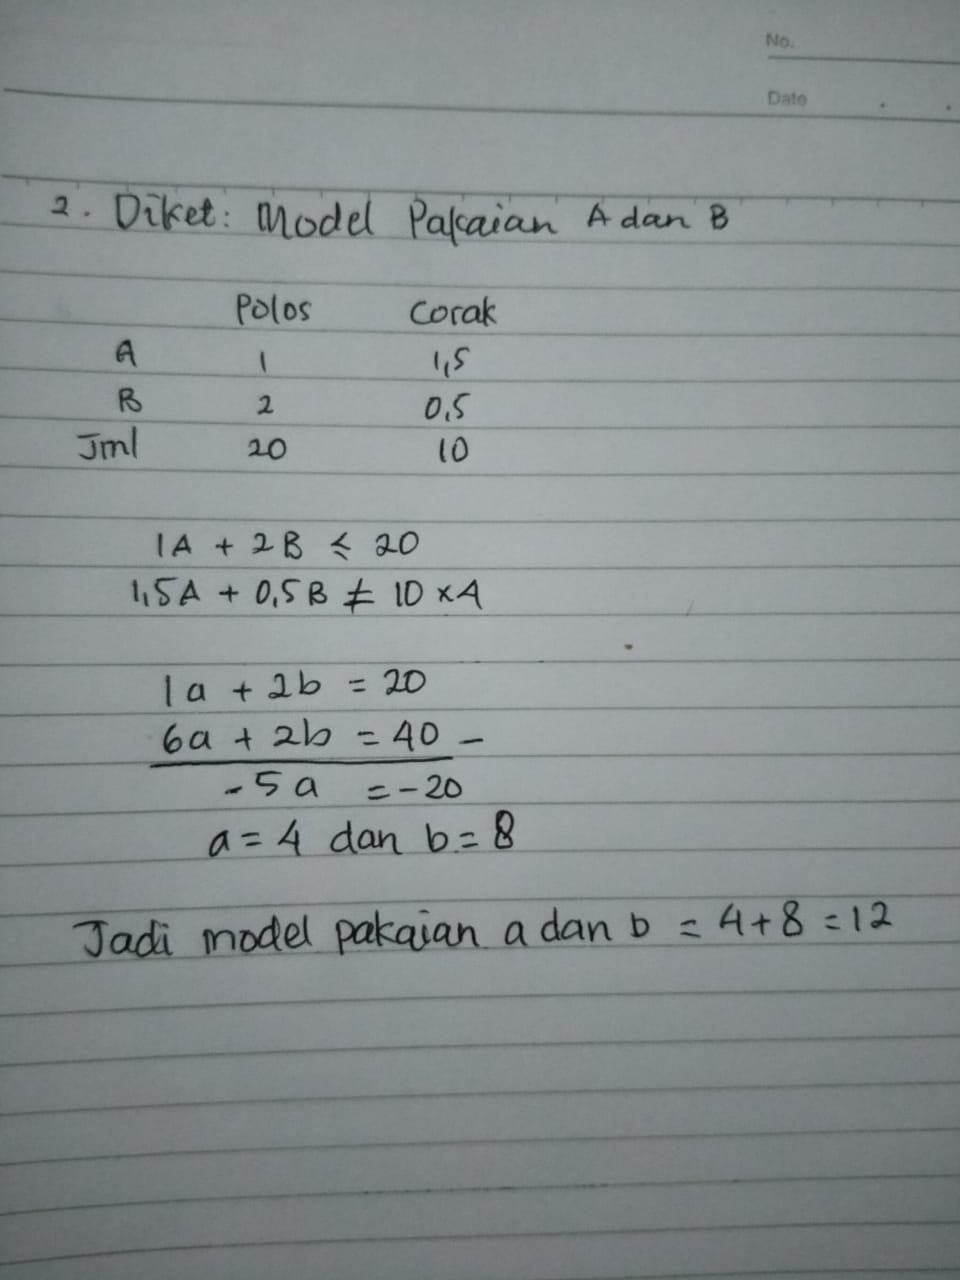 No.
Date
2. Diket: Model Pakaian A dan B
Polos Corak
A 1 1,5
B 2 0,5
Jml 20 10
1A + 2B ≤ 20
1,5A + 0,5B ≠ 10 x4
1a + 2b = 20
6a + 2b = 40 -
-5a = -20
a = 4 dan b = 8
Jadi model pakaian a dan b = 4+8 = 12